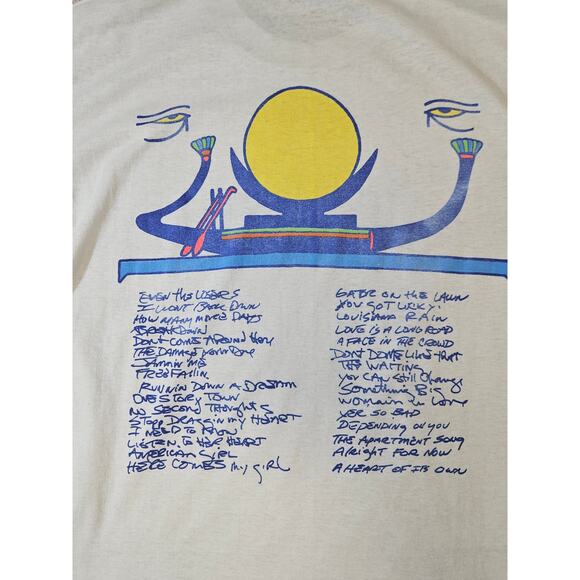 EVEN THE LOSERS
I WON'T BACK DOWN
HOW MANY MORE DAYS
BREAKDOWN
DON'T COME AROUND HERE
THE DAMAGE YOU'VE DONE
JAMMIN' ME
FREE FALLIN
RUNNIN DOWN A DREAM
ONE STORY TOWN
NO SECOND THOUGHTS
STOP DRAGGIN my HEART
I NEED TO KNOW
LISTEN TO HER HEART
AMERICAN GIRL
HERE COMES my girl
GATOR ON THE LAWN
YOU GOT LUCKY
LOUISIANA RAIN
LOVE IS A LONG ROAD
A FACE IN THE CROWD
DON'T DO ME LIKE THAT
THE WAITING
YOU CAN STILL CHANGE
SOMETHING BIG
WOMAN IN LOVE
YER SO BAD
DEPENDING ON YOU
THE APARTMENT SONG
ALRIGHT FOR NOW
A HEART OF ITS OWN